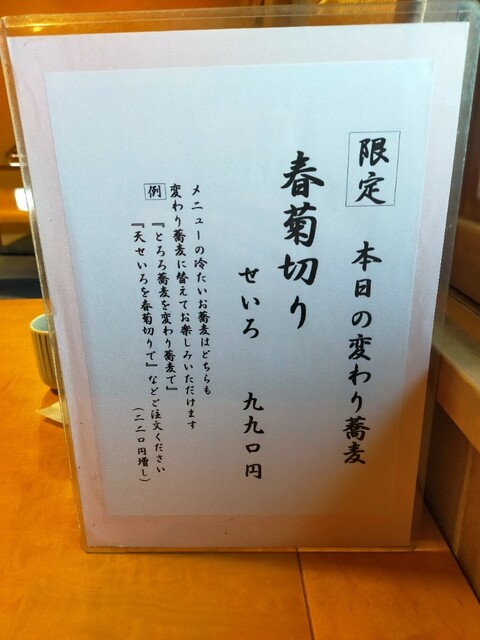 限定 本日の変わり蕎麦
春菊切り
せいろ 九九〇円
メニューの冷たいお蕎麦はどちらも
変わり蕎麦に替えてお楽しみいただけます
例 『とろろ蕎麦を変わり蕎麦で』
『天せいろを春菊切りで』などご注文ください
（二二〇円増し）